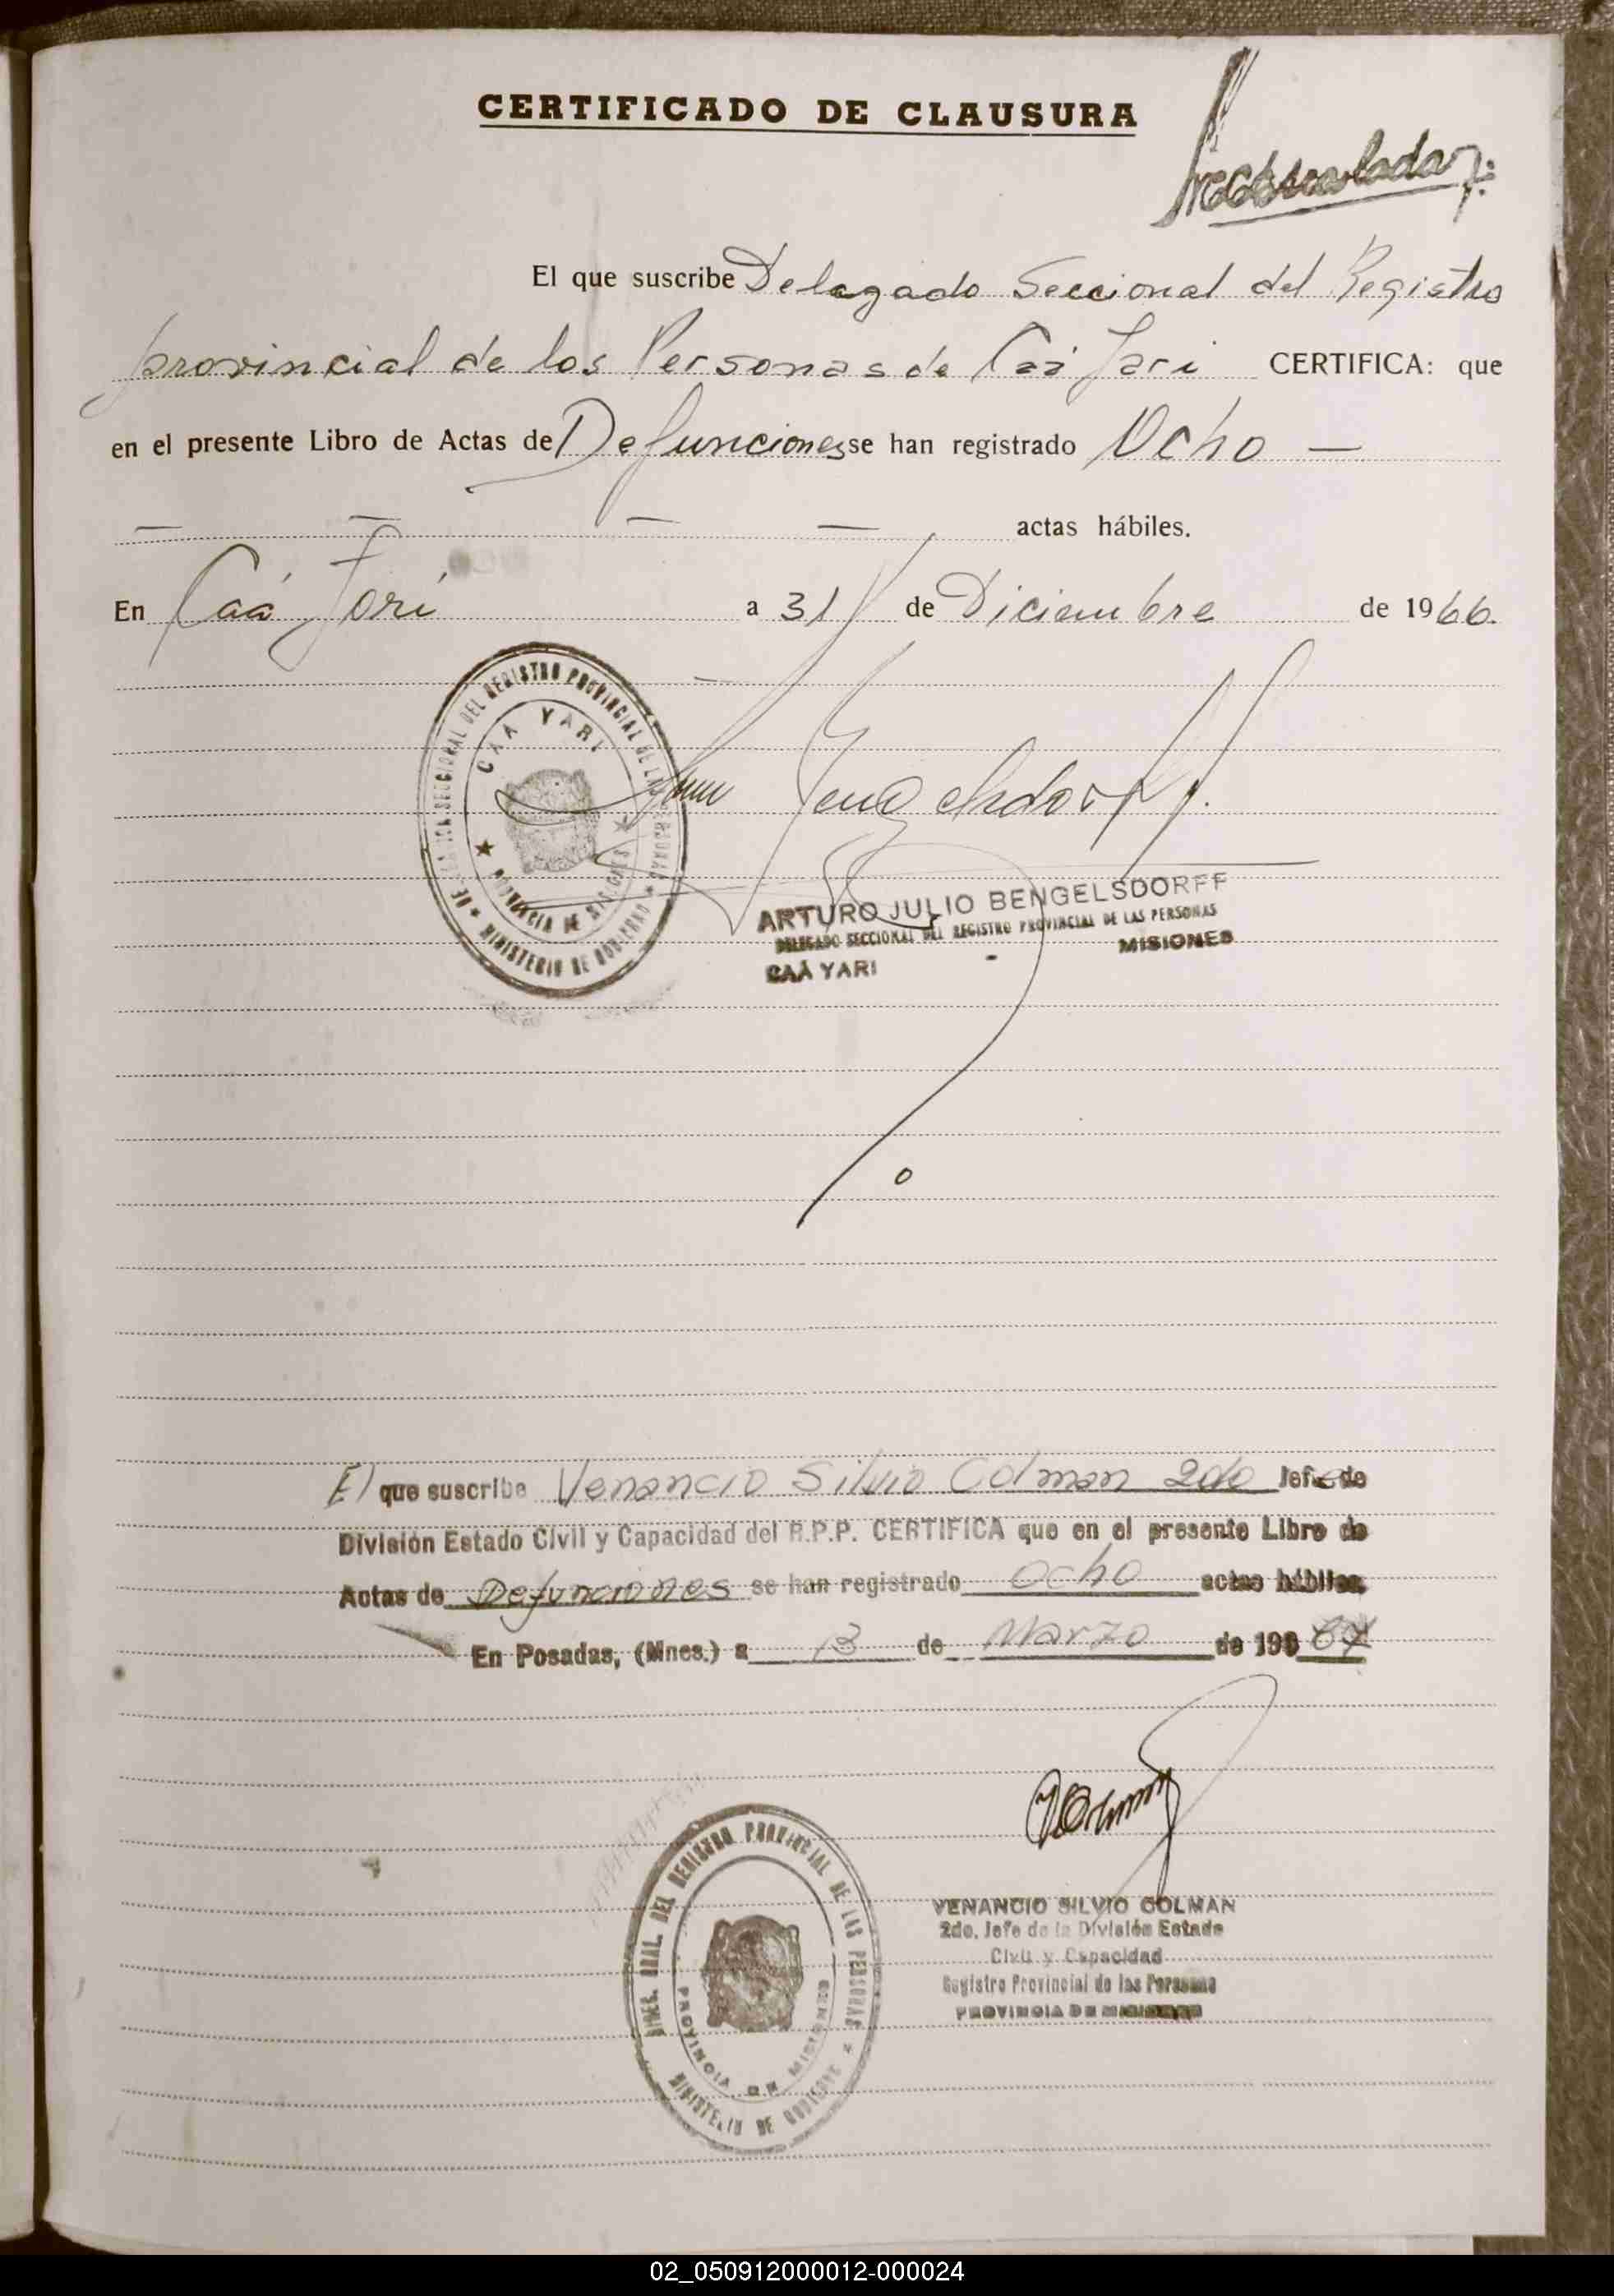 CERTIFICADO DE CLAUSURA
El que suscribe Delegado Seccional del Registro
provincial de los Personas de Caá Jari CERTIFICA: que
en el presente Libro de Actas de Defunciones se han registrado Ocho —
— — — — actas hábiles.
En Caá Jari a 31 de Diciembre de 1966.
DELEGACION SECCIONAL DEL REGISTRO PROVINCIAL DE LAS PERSONAS
CAA YARI
PROVINCIA DE MISIONES
MINISTERIO DE GOBIERNO
ARTURO JULIO BENGELSDORFF
DELEGADO SECCIONAL DEL REGISTRO PROVINCIAL DE LAS PERSONAS
MISIONES
CAÁ YARI
El que suscribe Venancio Silvio Colman 2do Jefe de
División Estado Civil y Capacidad del R.P.P. CERTIFICA que en el presente Libro de
Actas de Defunciones se han registrado ocho actas hábiles.
En Posadas, (Mnes.) a 13 de Marzo de 196 67
DIREC. GRAL. DEL REGISTRO PROVINCIAL DE LAS PERSONAS
PROVINCIA DE MISIONES
MINISTERIO DE GOBIERNO
VENANCIO SILVIO COLMAN
2do. Jefe de la División Estado
Civil y Capacidad
Registro Provincial de las Personas
PROVINCIA DE MISIONES
02_050912000012-000024